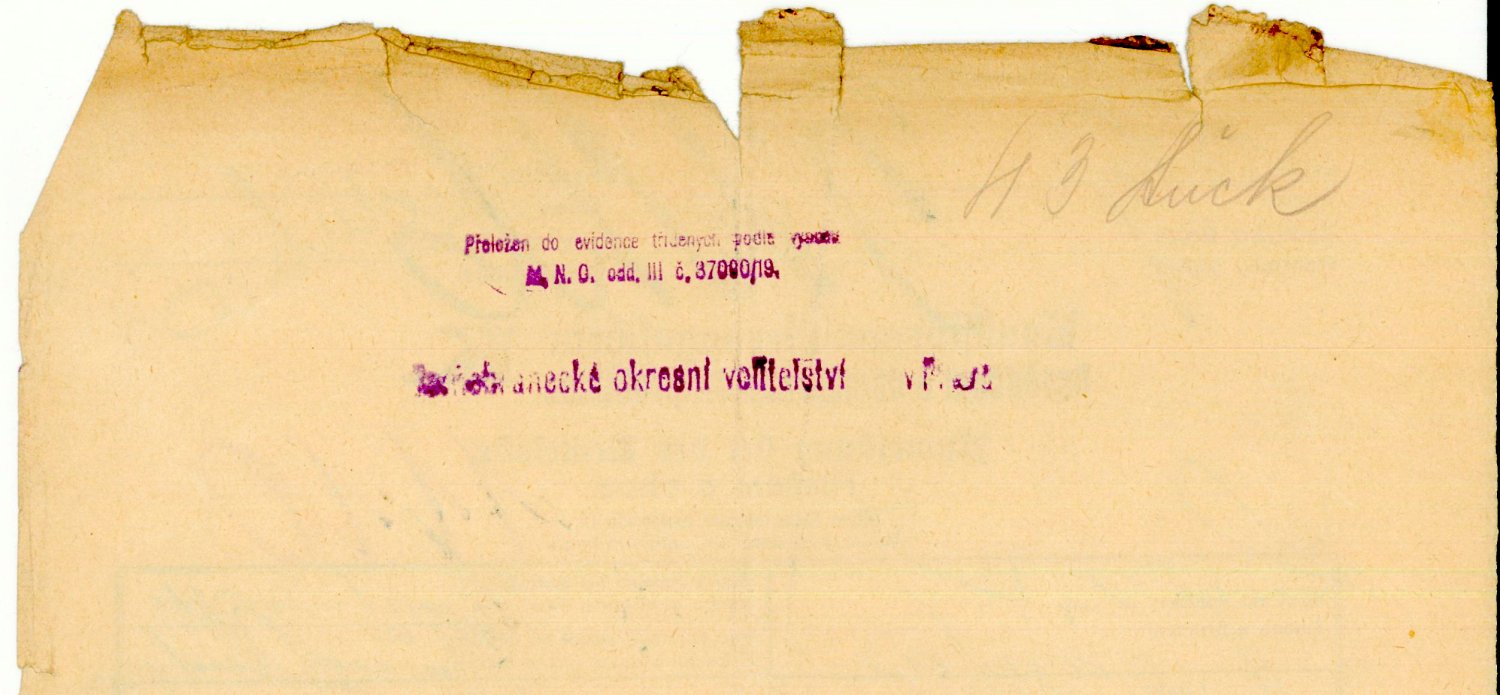 43
Přeložen do evidence tříděných podle výnosu
M. N. O. odd. III č. 37000/19.
okresní velitelství v